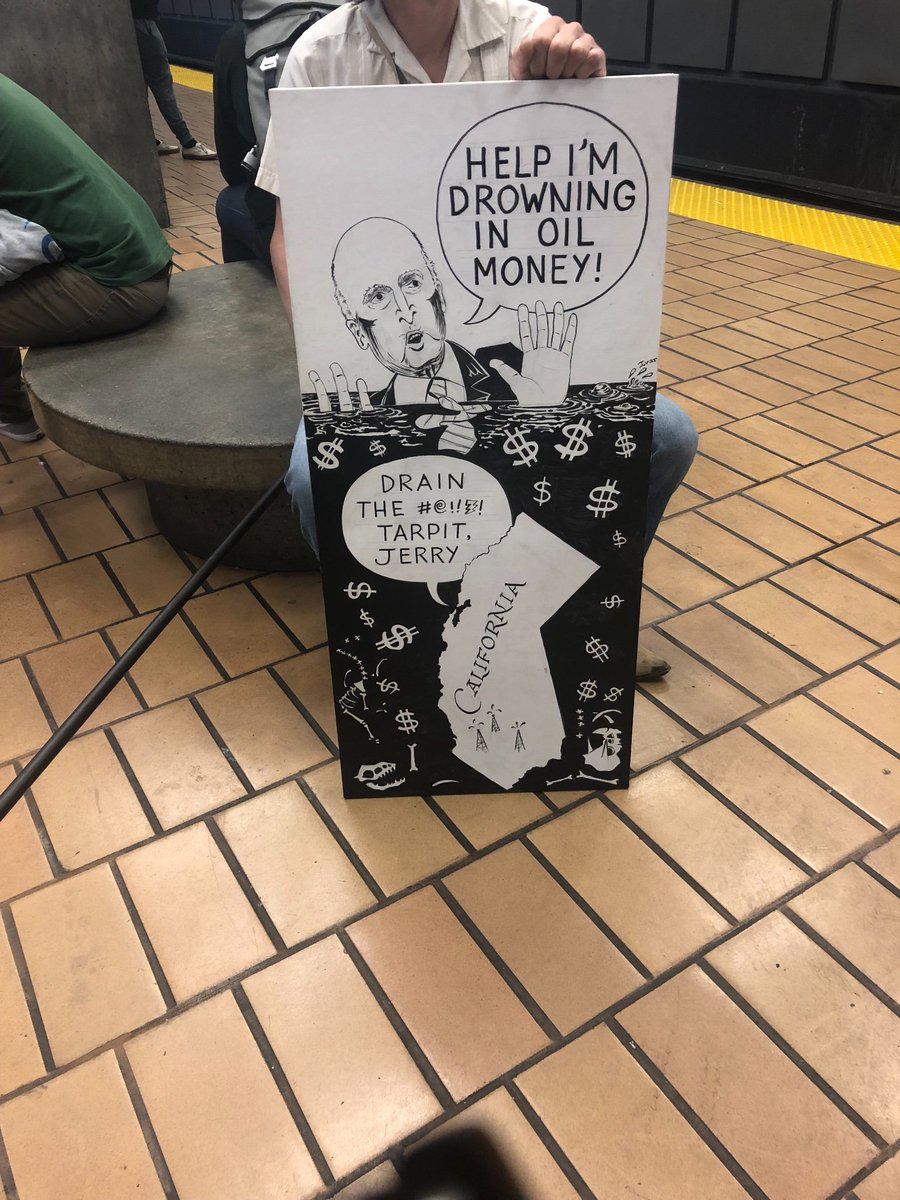 HELP I'M
DROWNING
IN OIL
MONEY!
DRAIN
THE #@!!⚡!
TARPIT,
JERRY
CALIFORNIA